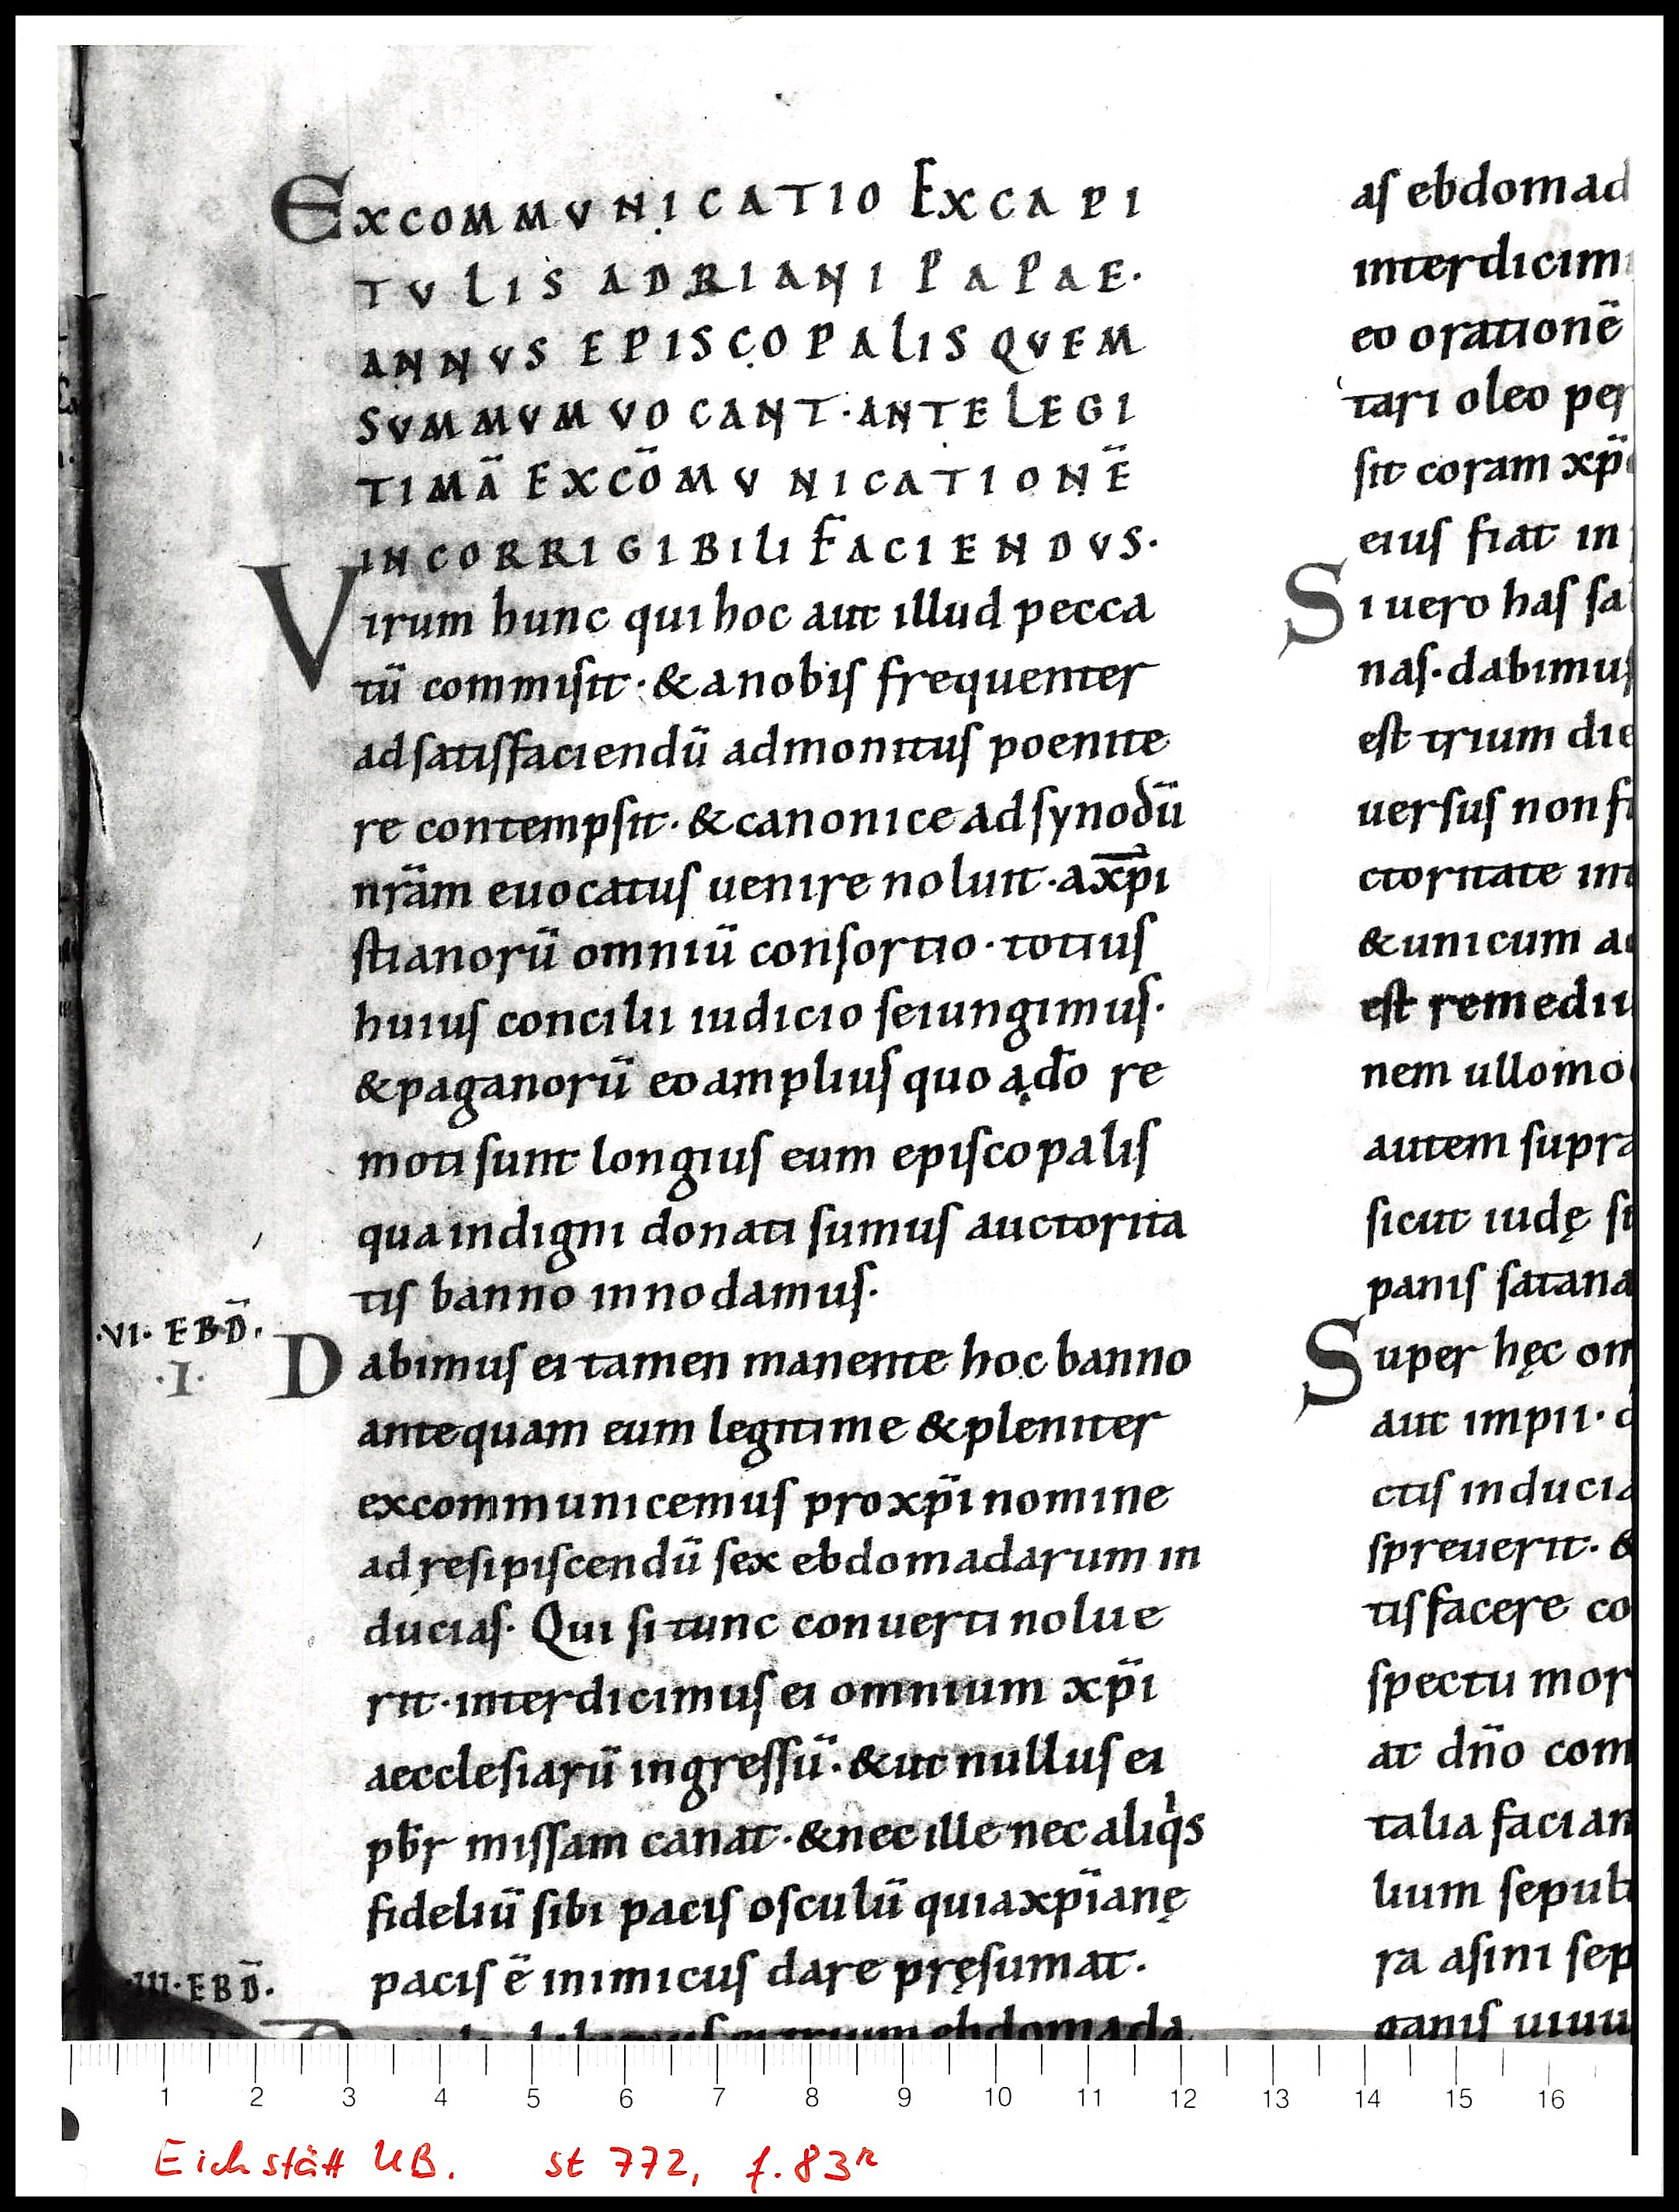 EXCOMMVNICATIO EXCAPI
TVLIS ADRIANI PAPAE·
ANNVS EPISCOPALIS QVEM
SVMMVM VOCANT·ANTE LEGI
TIMĀ EXCŌMVNICATIONĒ
INCORRIGIBILI FACIENDVS·
Virum hunc qui hoc aut illud pecca
tū commisit·& a nobis frequenter
ad satisfaciendū admonitus poenite
re contempsit·& canonice ad synodū
nr̄am euocatus uenire noluit·a xp̄i
stianorū omniū consortio·totius
huius concilii iudicio seiungimus·
& paganorū eo amplius quo a dō re
moti sunt longius eum episcopalis
qua indigni donati sumus auctorita
tis banno innodamus·
·VI· EBD̄.
·I·
Dabimus ei tamen manente hoc banno
antequam eum legitime & pleniter
excommunicemus pro xp̄i nomine
ad resipiscendū sex ebdomadarum in
ducias· Qui si tunc conuerti nolue
rit·interdicimus ei omnium xp̄i
aecclesiarū ingressū·& ut nullus ei
pb̄r missam canat·& nec ille nec aliqͥs
fideliū sibi pacis osculū quia xp̄ianę
pacis ē inimicus dare pręsumat·
III·EBD̄.
ebdomada
as ebdomad
interdicim
eo orationē
tari oleo per
sit coram xp̄
eius fiat in
Si uero has sa
nas·dabimus
est trium die
uersus non fu
ctoritate int
& unicum a
est remediu
nem ullomo
autem supra
sicut iudę si
panis satana
Super hęc om
aut impii·
ctis inducia
spreuerit·&
tisfacere co
spectu mor
at dn̄o com
talia facian
lium sepul
ra asini sep
ganis uiuu
1 2 3 4 5 6 7 8 9 10 11 12 13 14 15 16
Eichstätt UB. st 772, f. 83r